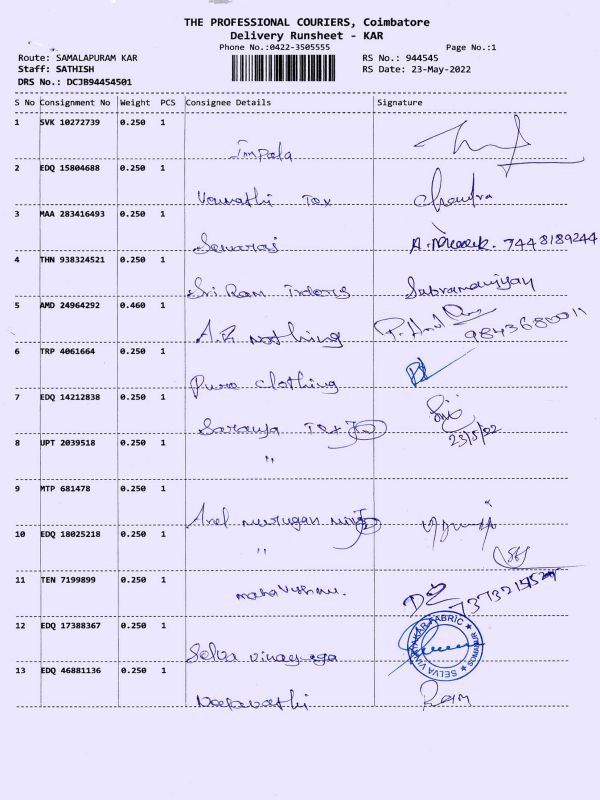 THE PROFESSIONAL COURIERS, Coimbatore
Delivery Runsheet - KAR
Phone No.:0422-3505555
Page No.:1
Route: SAMALAPURAM KAR
RS No.: 944545
Staff: SATHISH
RS Date: 23-May-2022
DRS No.: DCJB94454501
S No Consignment No Weight PCS Consignee Details Signature
1 SVK 10272739 0.250 1
Impala
2 EDQ 15804688 0.250 1
Tex Chandra
3 MAA 283416493 0.250 1
Selvaraj A. 7448189244
4 THN 938324521 0.250 1
Sri Ram Traders Subramaniyan
5 AMD 24964292 0.460 1
A.R. Nothing 9843680011
6 TRP 4061664 0.250 1
Pure clothing
7 EDQ 14212838 0.250 1
Saranya Tex
23/5/22
8 UPT 2039518 0.250 1
"
9 MTP 681478 0.250 1
Arul murugan
10 EDQ 18025218 0.250 1
"
11 TEN 7199899 0.250 1
maha vishnu.
12 EDQ 17388367 0.250 1
SELVA VINAYAKAR FABRIC
Selva vinayaga
13 EDQ 46881136 0.250 1
Ram